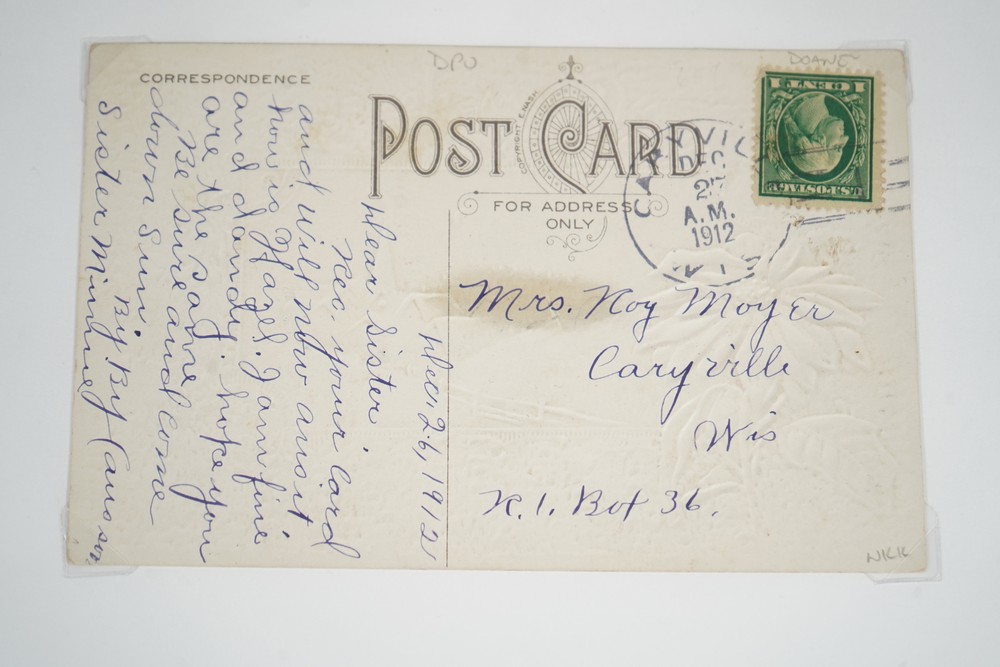 DPO
DOANE
CORRESPONDENCE
POST CARD
COPYRIGHT E. NASH
FOR ADDRESS
ONLY
U.S. POSTAGE
1 CENT 1
CARYVILLE
DEC
27
A.M.
1912
WIS
Dec. 26, 1912
Dear Sister.
Rec. your Card
and will now ansit
how is Hazel. I am fine
and dandy. hope you
are the same
Be sure and come
down Sun.
By By
Sister Minnie
Mrs. Roy Moyer
Caryville
Wis
R.1. Box 36.